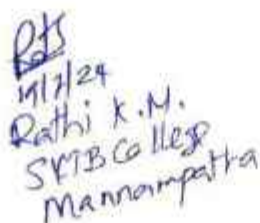 19/7/24
Rathi K.M.
SKTB College
Mannampatta